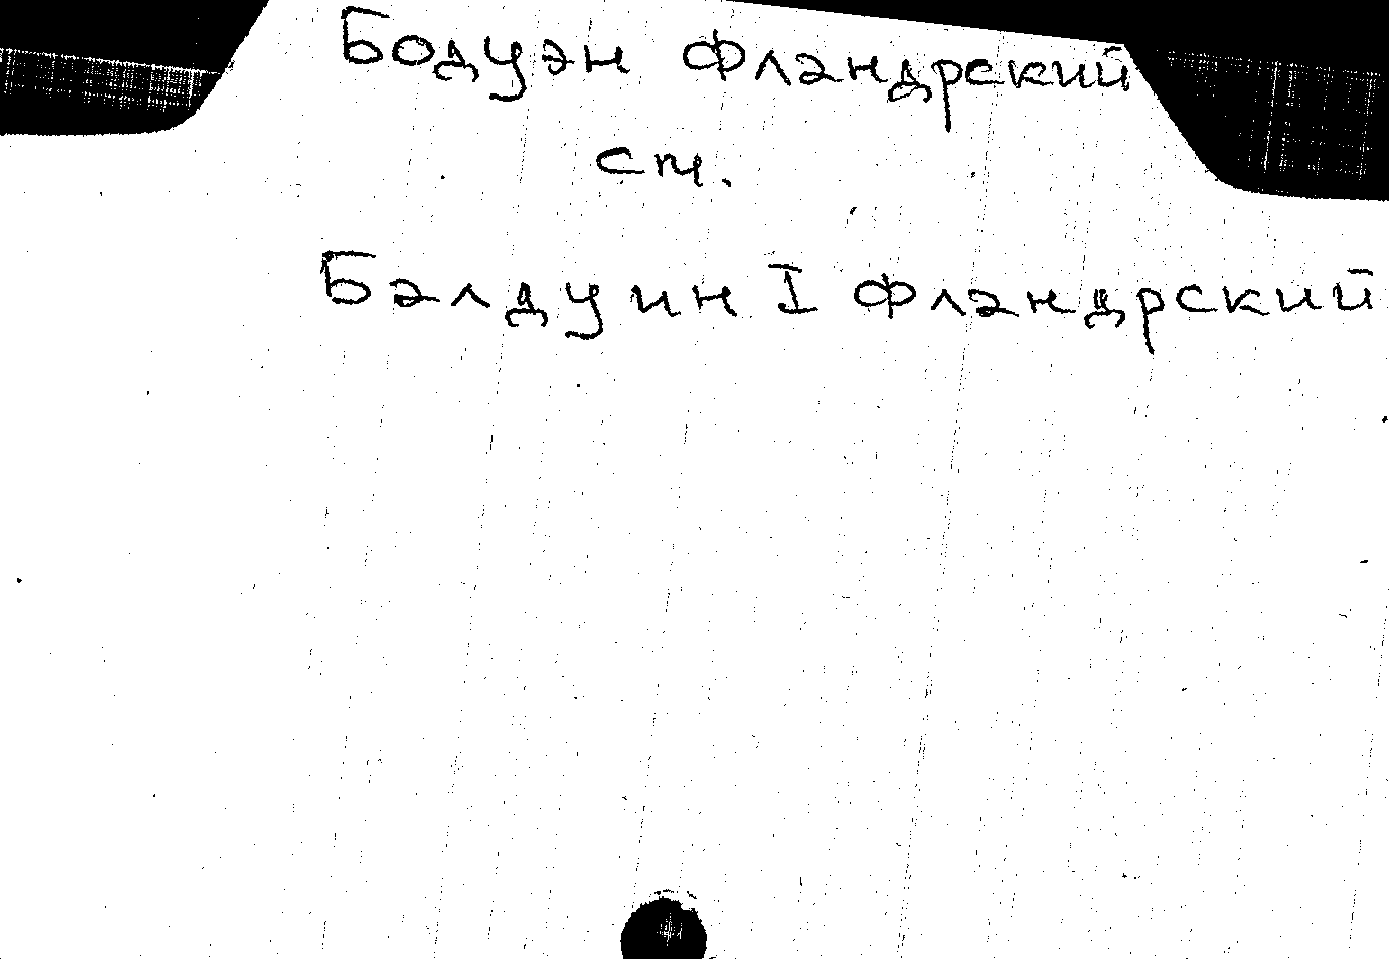 Бодуэн Фландрский
см.
Балдуин I Фландрский